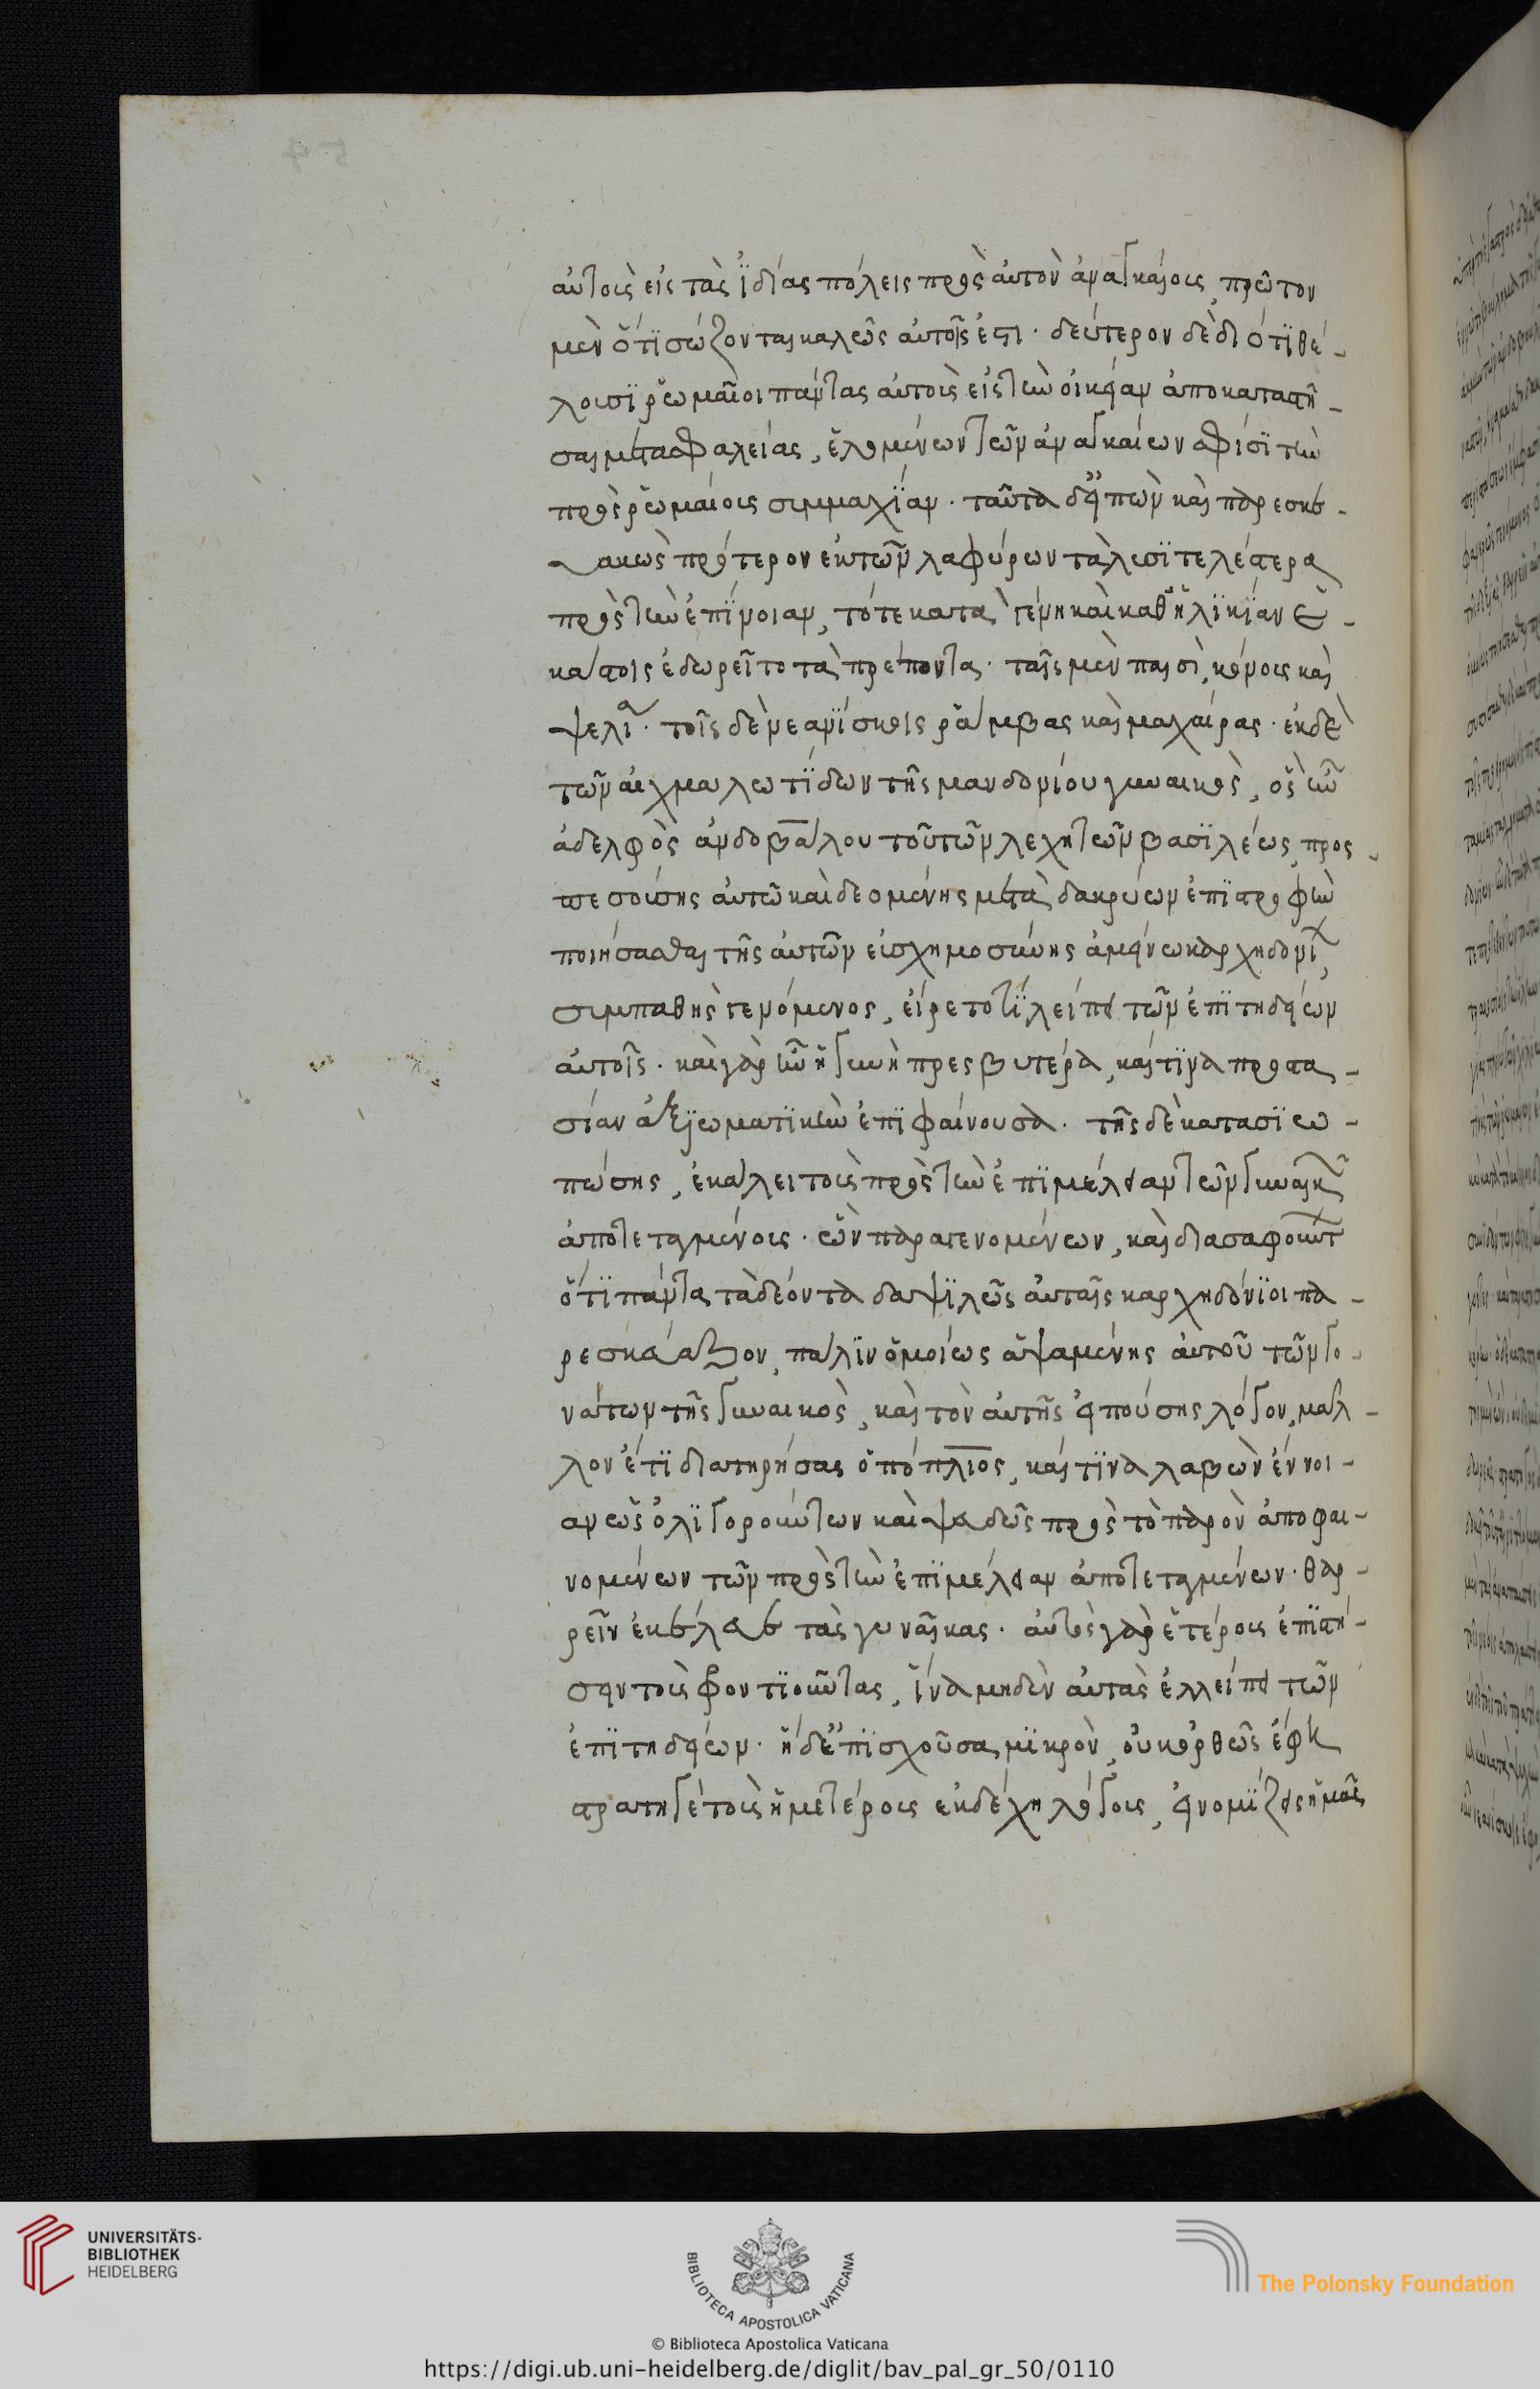 αὐτοὺς εἰς τὰς ἰδίας πόλεις πρὸς αὐτὸν ἀναγκαίους, πρῶτον
μὲν ὅτι σώζονται καλῶς αὐτοῖς ἐστι. δεύτερον δὲ διότι θέ-
λουσι ῥωμαῖοι πάντας αὐτοὺς εἰς τὴν οἰκείαν ἀποκαταστῆ-
σαι μετ' ἀσφαλείας, ἑλομένων τῶν ἀναγκαίων σφίσι τὴν
πρὸς ῥωμαίους συμμαχίαν. ταῦτα δ' εἰπὼν καὶ παρεσκευ-
ακὼς πρότερον ἐκ τῶν λαφύρων τὰ λυσιτελέστερα
πρὸς τὴν ἐπίνοιαν, τότε κατὰ γένη καὶ καθ' ἡλικίαν ἑ-
κάστοις ἐδωρεῖτο τὰ πρέποντα. ταῖς μὲν παισὶ, κόνους καὶ
ψέλια. τοῖς δὲ νεανίσκοις ῥάμβας καὶ μαχαίρας. ἐκ δὲ
τῶν αἰχμαλωτίδων τῆς μανδονίου γυναικὸς, ὃς ἦν
ἀδελφὸς ἀνδοβάλου τοῦ τῶν λεχητῶν βασιλέως, προσ-
πεσούσης αὐτῶ καὶ δεομένης μετὰ δακρύων ἐπιστροφὴν
ποιήσασθαι τῆς αὐτῶν εὐσχημοσύνης ἀμείνω καρχηδονί,
συμπαθὴς γενόμενος, εἴρετο τί λείπει τῶν ἐπιτηδείων
αὐτοῖς. καὶ γὰρ ἦν ἡ γυνὴ πρεσβυτέρα, καί τινα προστα-
σίαν ἀξιωματικὴν ἐπιφαίνουσα. τῆς δὲ κατασιω-
πώσης, ἐκάλει τοὺς πρὸς τὴν ἐπιμέλειαν τῶν γυναικῶν
ἀποτεταγμένους. ὧν παραγενομένων, καὶ διασαφούντ
ὅτι πάντα τὰ δέοντα δαψιλῶς αὐταῖς καρχηδόνιοι πα-
ρεσκεύαζον, πάλιν ὁμοίως ἁψαμένης αὐτοῦ τῶν γο-
νάτων τῆς γυναικὸς, καὶ τὸν αὐτῆς εἰπούσης λόγον, μαλ-
λον ἔτι διατηρήσας ὁ πόπλιος, καί τινα λαβὼν ἔννοι-
αν ὡς ὀλιγορούντων καὶ ψευδῶς πρὸς τὸ παρὸν ἀποφαι-
νομένων τῶν πρὸς τὴν ἐπιμέλειαν ἀποτεταγμένων. θαρ-
ρεῖν ἐκέλευε τὰς γυναῖκας. αὐτὸς γὰρ ἑτέρους ἐπιστή-
σειν τοὺς φροντιοῦντας, ἵνα μηδὲν αὐτὰς ἐλλείπει τῶν
ἐπιτηδείων. ἡ δ' ἐπισχοῦσα μικρὸν, οὐκ ὀρθῶς ἔφη
στρατηγὲ τοὺς ἡμετέρους ἐκδέχη λόγους, εἰ νομίζεις ἡμᾶς
UNIVERSITÄTS-
BIBLIOTHEK
HEIDELBERG
BIBLIOTECA APOSTOLICA VATICANA
The Polonsky Foundation
© Biblioteca Apostolica Vaticana
https://digi.ub.uni-heidelberg.de/diglit/bav_pal_gr_50/0110